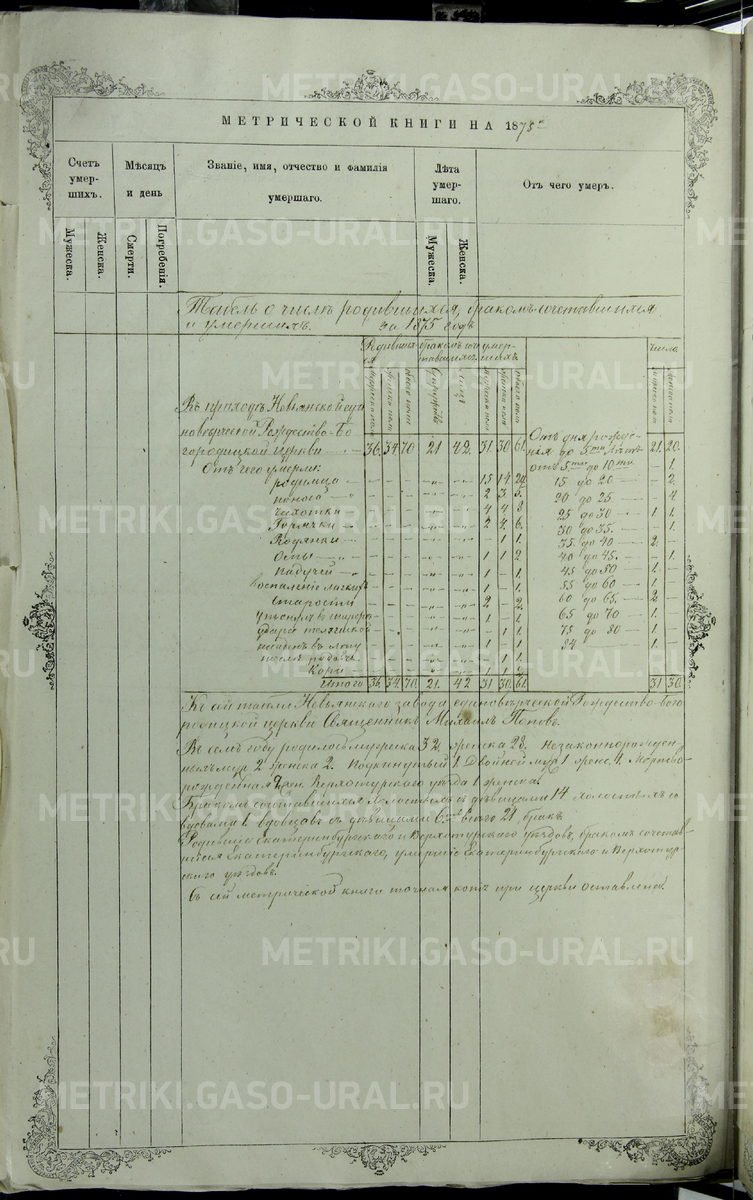 МЕТРИЧЕСКОЙ КНИГИ НА 1875й
Счетъ умершихъ. Мѣсяцъ и день Званіе, имя, отчество и фамилія умершаго. Лѣта умершаго. Отъ чего умеръ.
Мужеска. Женска. Смерти. Погребенія. Мужеска. Женска.
Табель о числѣ родившихся, бракомъ сочетавшихся
и умершихъ. за 1875 годъ
Родившихся бракомъ сочетавшихся умершихъ Числа
мужеска пола женска пола обоего пола Супружествъ лицъ мужеска пола женска пола обоего пола мужеска пола женска пола
Въ приходѣ Невьянской еди
новѣрческой Рождество-Бо
городицкой церкви 36. 34 70 21 42. 31. 30 61. Отъ дня рожде
нія до 5ти лѣтъ 21. 20.
Отъ чего умерли: отъ 5ти до 10ти — 1.
родимца 15 14 29 15 до 20 — 2.
поноса 2 3. 5. 20 до 25 — 4
чахотки 4 4 8 25 до 30 1 1.
Горячки 2 4. 6. 30 до 35. — 1.
Водянки — 1 1. 35 до 40 2. —
Оспы 1 1 2 40 до 45. — 1.
Падучей 1 — 1. 45 до 50 1. —
воспаленіе легкихъ 1 — 1. 55 до 60 1. —
Старости 2 — 2. 60 до 65. 2 —
1 — 1. 65 до 70 1. —
удара — 1 1. 75 до 80 1. —
1 — 1. 84 1. —
послѣ родовъ — 1 1.
Кори 1 — 1.
Итого 36. 34. 70. 21. 42 31 30. 61. 31 30.
Къ сей табели Невьянскаго завода единовѣрческой Рождество-Бого
родицкой церкви Священникъ Михаилъ Поповъ.
Въ семъ году родилось мужска 32 женска 28. Незаконнорожден
ныхъ муж 2 женска 2. Подкидышъ 1 Двойней муж 1 женс. 4. Мертво
рожденная 2 жен. Верхотурскаго уѣзда 1 женска.
Бракомъ сочетавшихся холостыхъ съ дѣвицами 14 холостыхъ со
вдовами 1. вдовцовъ съ дѣвицами 6. всего 21. бракъ
Родившіе Екатеринбургскаго и Верхотурскаго уѣздовъ, бракомъ сочетав
шіеся Екатеринбургскаго, умершіе Екатеринбургскаго и Верхотур
скаго уѣздовъ.
Съ сей метрической книги точная копія при церкви оставлена.
METRIKI.GASO-URAL.RU